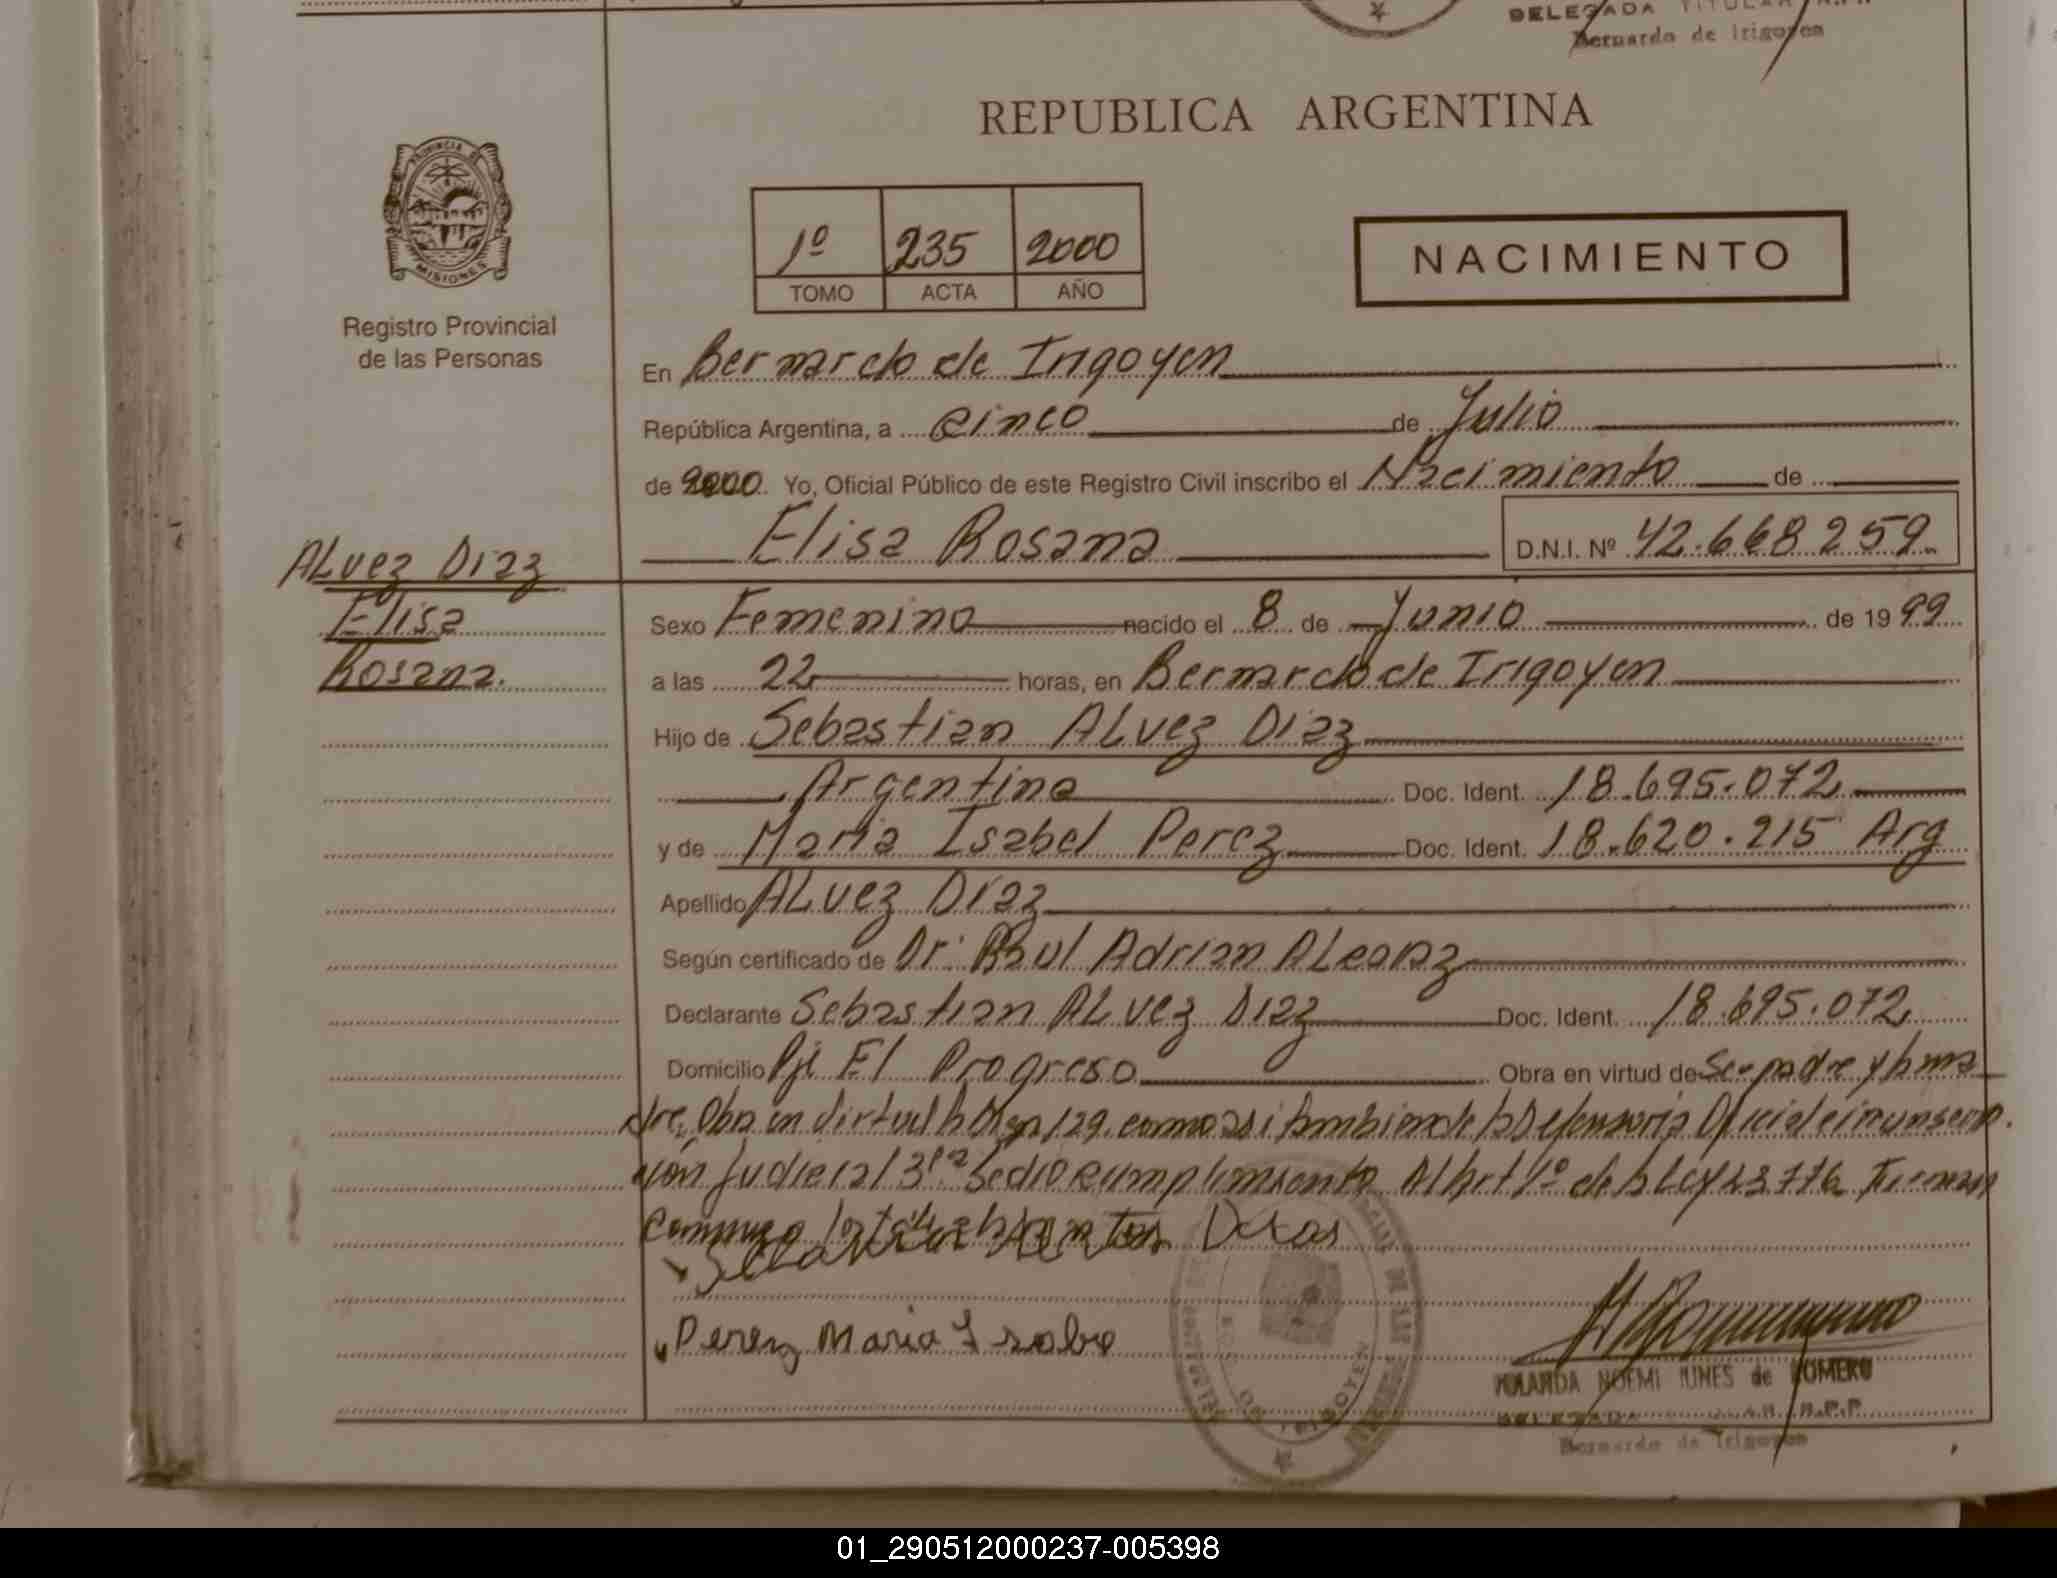 DELEGADA TITULAR R.P.P.
Bernardo de Irigoyen
REPUBLICA ARGENTINA
PROVINCIA DE
MISIONES
1º 235 2000
TOMO ACTA AÑO
NACIMIENTO
Registro Provincial
de las Personas
En Bernardo de Irigoyen
República Argentina, a cinco de Julio
de 2000 Yo, Oficial Público de este Registro Civil inscribo el Nacimiento de
Elisa Rosana D.N.I. Nº 42.668259
ALvez Diaz
Elisa
Rosana.
Sexo Femenino nacido el 8 de Junio de 1999
a las 22 horas, en Bernardo de Irigoyen
Hijo de Sebastian ALvez Diaz
Argentino Doc. Ident. 18.695.072
y de Maria Isabel Perez Doc. Ident. 18.620.215 Arg
Apellido ALvez Diaz
Según certificado de Dr. Raul Adrian ALcaraz
Declarante Sebastian ALvez Diaz Doc. Ident. 18.695.072
Domicilio Pje El Progreso Obra en virtud de Ser padre y la ma
dre, Obra en virtud 129. como asi tambien de la Defensoria Oficial
Judicial 3ra Se dio cumplimiento Al Art 1º de la Ley
Conmigo
Perez Maria Isabe
DE IRIGOYEN
YOLANDA NOEMI NUNES de ROMERO
DELEGADA R.P.P.
Bernardo de Irigoyen
01_290512000237-005398